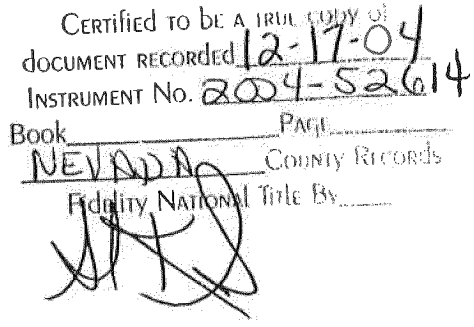 Certified to be a true copy of
document recorded 12-17-04
Instrument No. 2004-52614
Book Page
NEVADA County Records
Fidelity National Title By